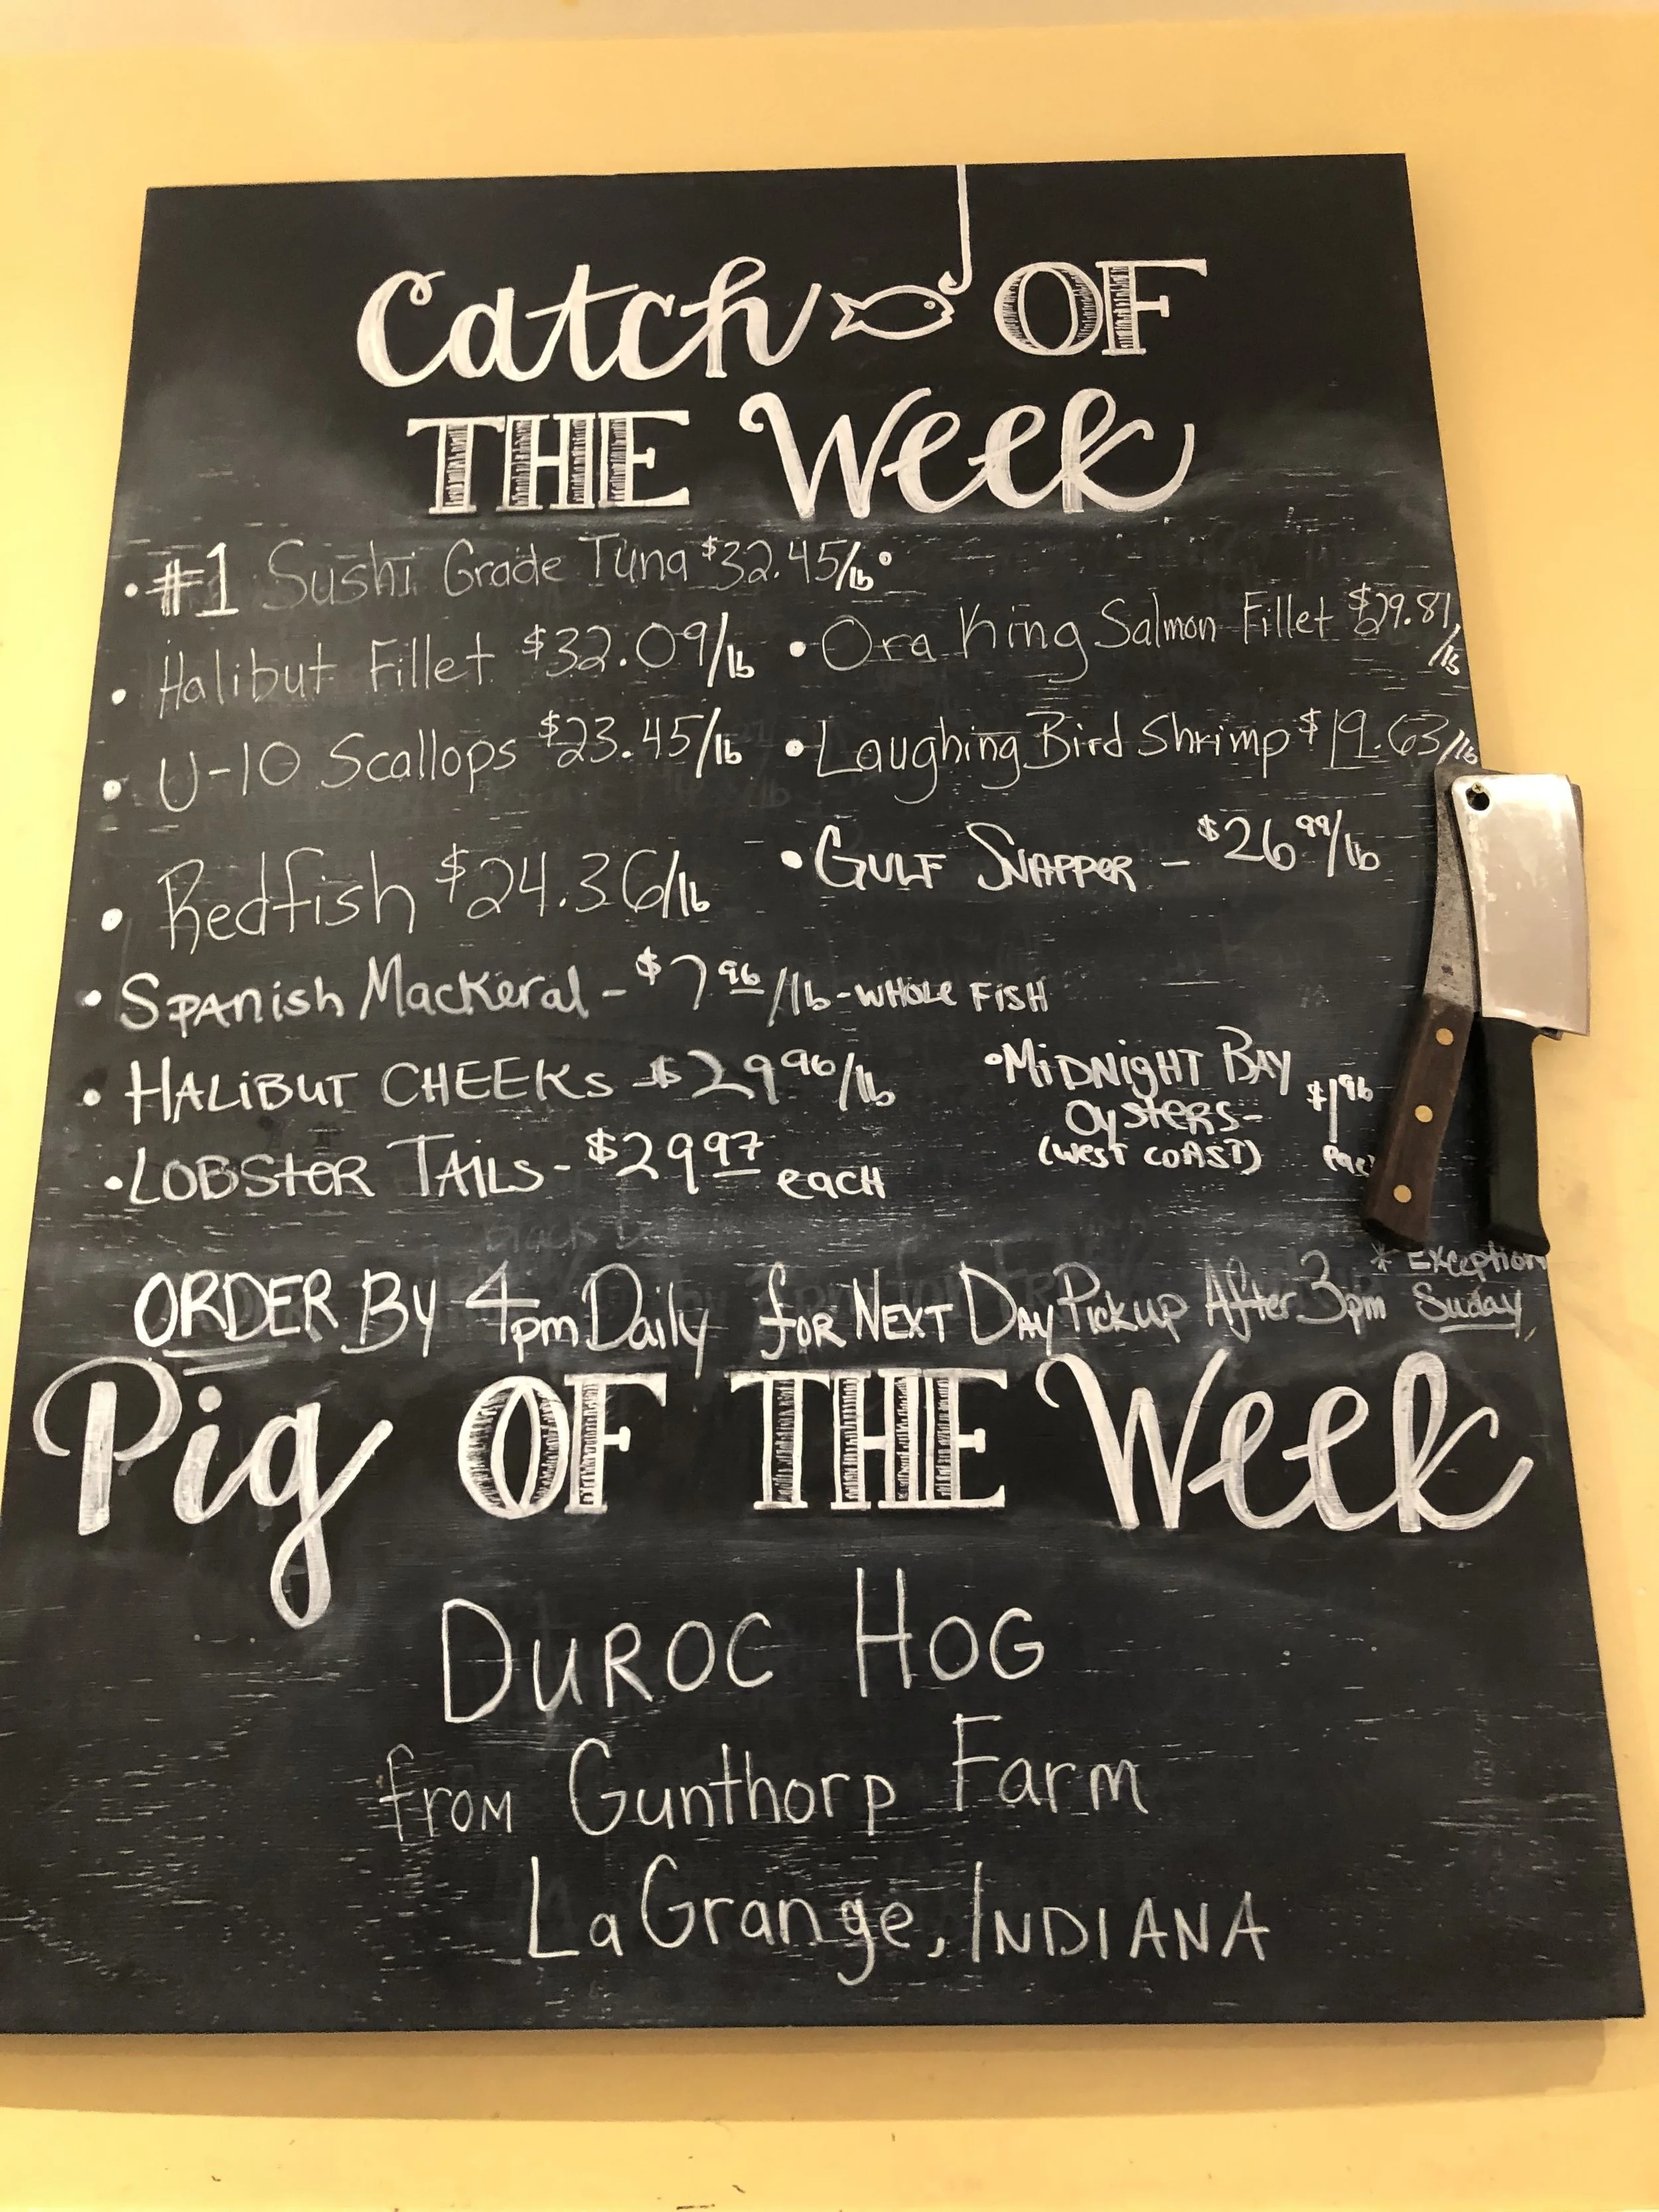 Catch OF
THE Week
• #1 Sushi Grade Tuna $32.45/lb •
• Halibut Fillet $32.09/lb
• Ora King Salmon Fillet $29.81/lb
• U-10 Scallops $23.45/lb
• Laughing Bird Shrimp $19.63/lb
• Redfish $24.36/lb
• GULF SNAPPER - $26 99/lb
• SPANISH MACKERAL - $7 96/lb - WHOLE FISH
• HALIBUT CHEEKS - $29 96/lb
• MIDNIGHT BAY
OYSTERS-
(WEST COAST)
$1 96
each
• LOBSTER TAILS - $29 97 each
* Exception
ORDER By 4pm Daily for NEXT DAY Pickup After 3pm Suday,
Pig OF THE Week
DUROC HOG
from Gunthorp Farm
LaGrange, INDIANA